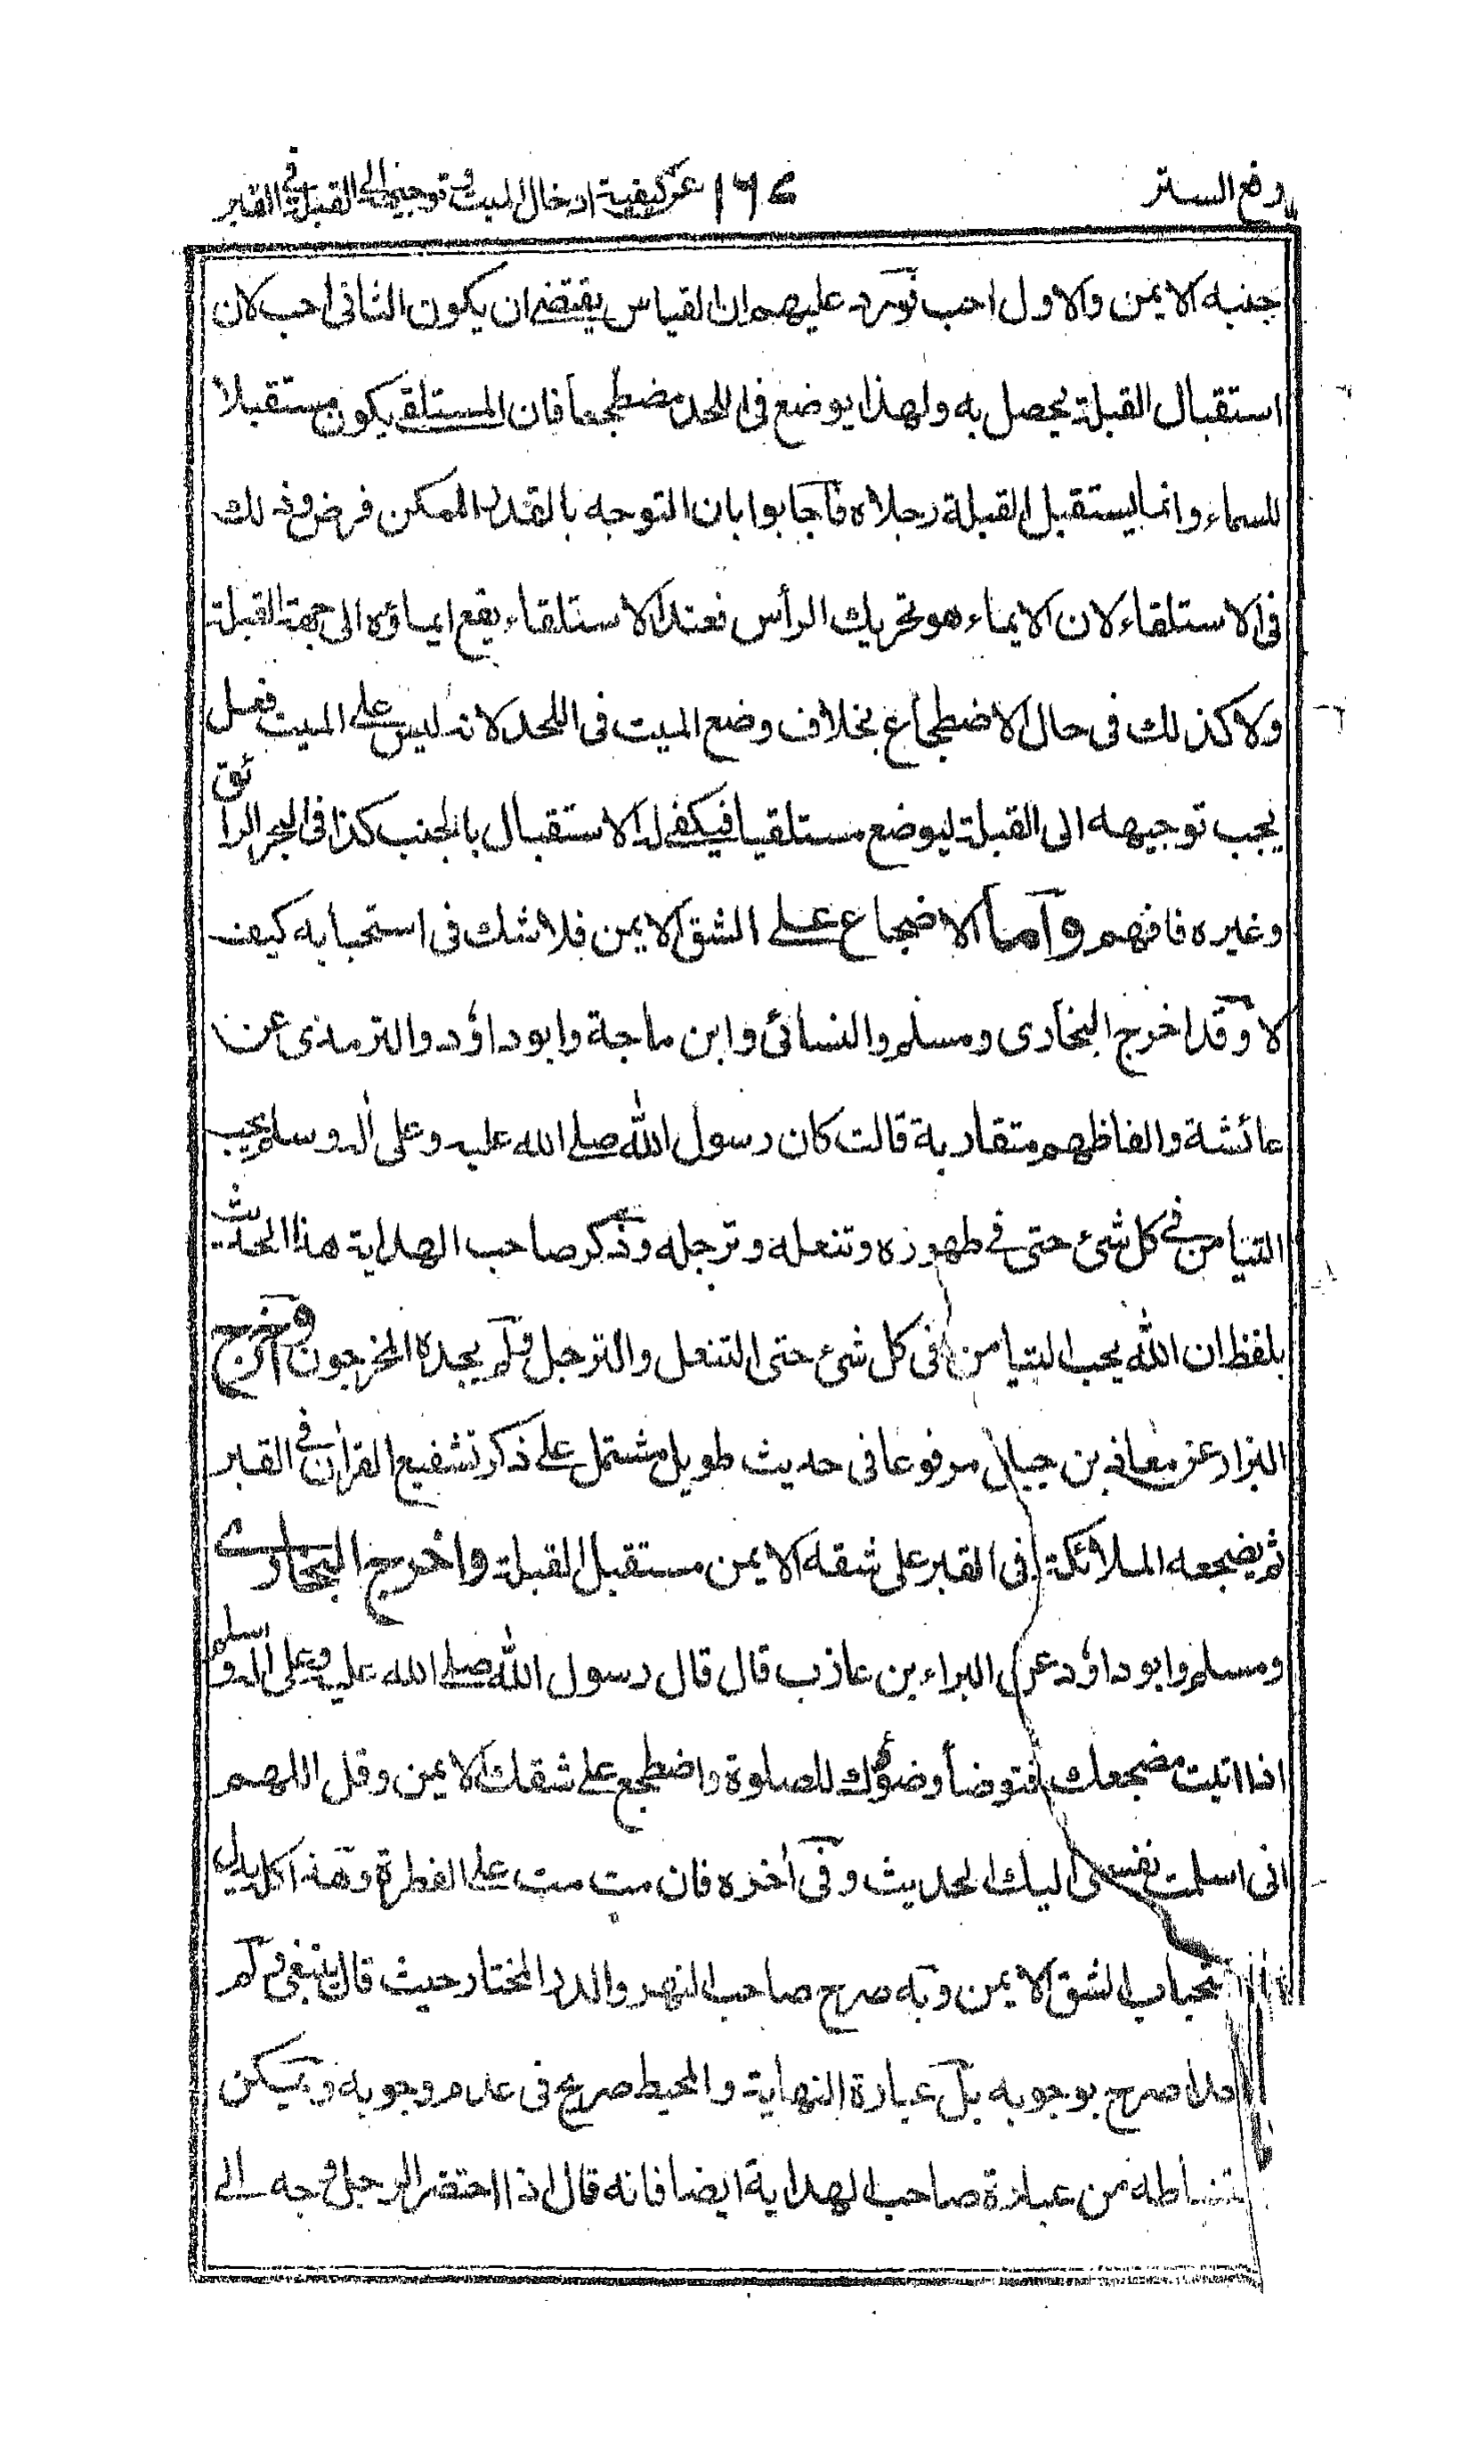 رفع الستر ١٦٤ عن كيفية ادخال الميت وتوجيهه الى القبلة في القبر
جنبه الايمن والاول احب وَورد عليهم ان القياس يقتضے ان يكون الثانى احب لان
استقبال القبلة يحصل به ولهذا يوضع فى اللحد مضطجعا فان المستلقے يكون مستقبلا
للسماء وانما يستقبل القبلة رجلاه فاَجابوا بان التوجه بالقدر الممكن فرض وذلك
فى الاستلقاء لان الايماء هو تحريك الرأس فعند الاستلقاء يقع ايماؤه الى جهة القبلة
ولا كذلك فى حال الاضطجاع بخلاف وضع الميت فى اللحد لانه ليس على الميت فعل
يجب توجيهه الى القبلة ليوضع مستلقيا فيكفے له الاستقبال بالجنب كذا فى البحر الرائق
وغيره فافهم وآما الاضجاع علے الشق الايمن فلا شك فى استحبابه كيف
لا وَقد اخرج البخارى ومسلم والنسائى وابن ماجة وابو داؤد والترمذى عن
عائشة والفاظهم متقاربة قالت كان رسول الله صلے الله عليه وعلى اٰله وسلم يحب
التيامن في كل شئ حتى في طهوره وتنعله وترجله وذَكر صاحب الهداية هذا الحديث
بلفظ ان الله يحب التيامن فى كل شئ حتى التنعل والترجل ولَم يجده المخرجون وَاخرج
البزار عن معاذ بن جبل مرفوعا فى حديث طويل مشتمل على ذكر تشفيع القراٰن في القبر
ثم يضجعه الملائكة فى القبر على شقه الايمن مستقبل القبلة واخرج البخارے
ومسلم وابو داؤد عن البراء بن عازب قال قال رسول الله صلے الله عليه وعلى اٰله وسلم
اذا اتيت مضجعك فتوضأ وضوؤك للصلوة واضطجع على شقك الايمن وقل اللهم
انى اسلمت نفسى اليك الحديث وفَى اٰخره فان مت مت على الفطرة وهَذا كله يدل
تحباب الشق الايمن وبَه صرح صاحب النهر والدر المختار حيث قال ينبغى ولَم
احدا صرح بوجوبه بلَ عبارة النهاية والمحيط صريح فى عدم وجوبه ويَمكن
تنباطه من عبارة صاحب الهداية ايضا فانه قال اذا احتضر الرجل وجه الى